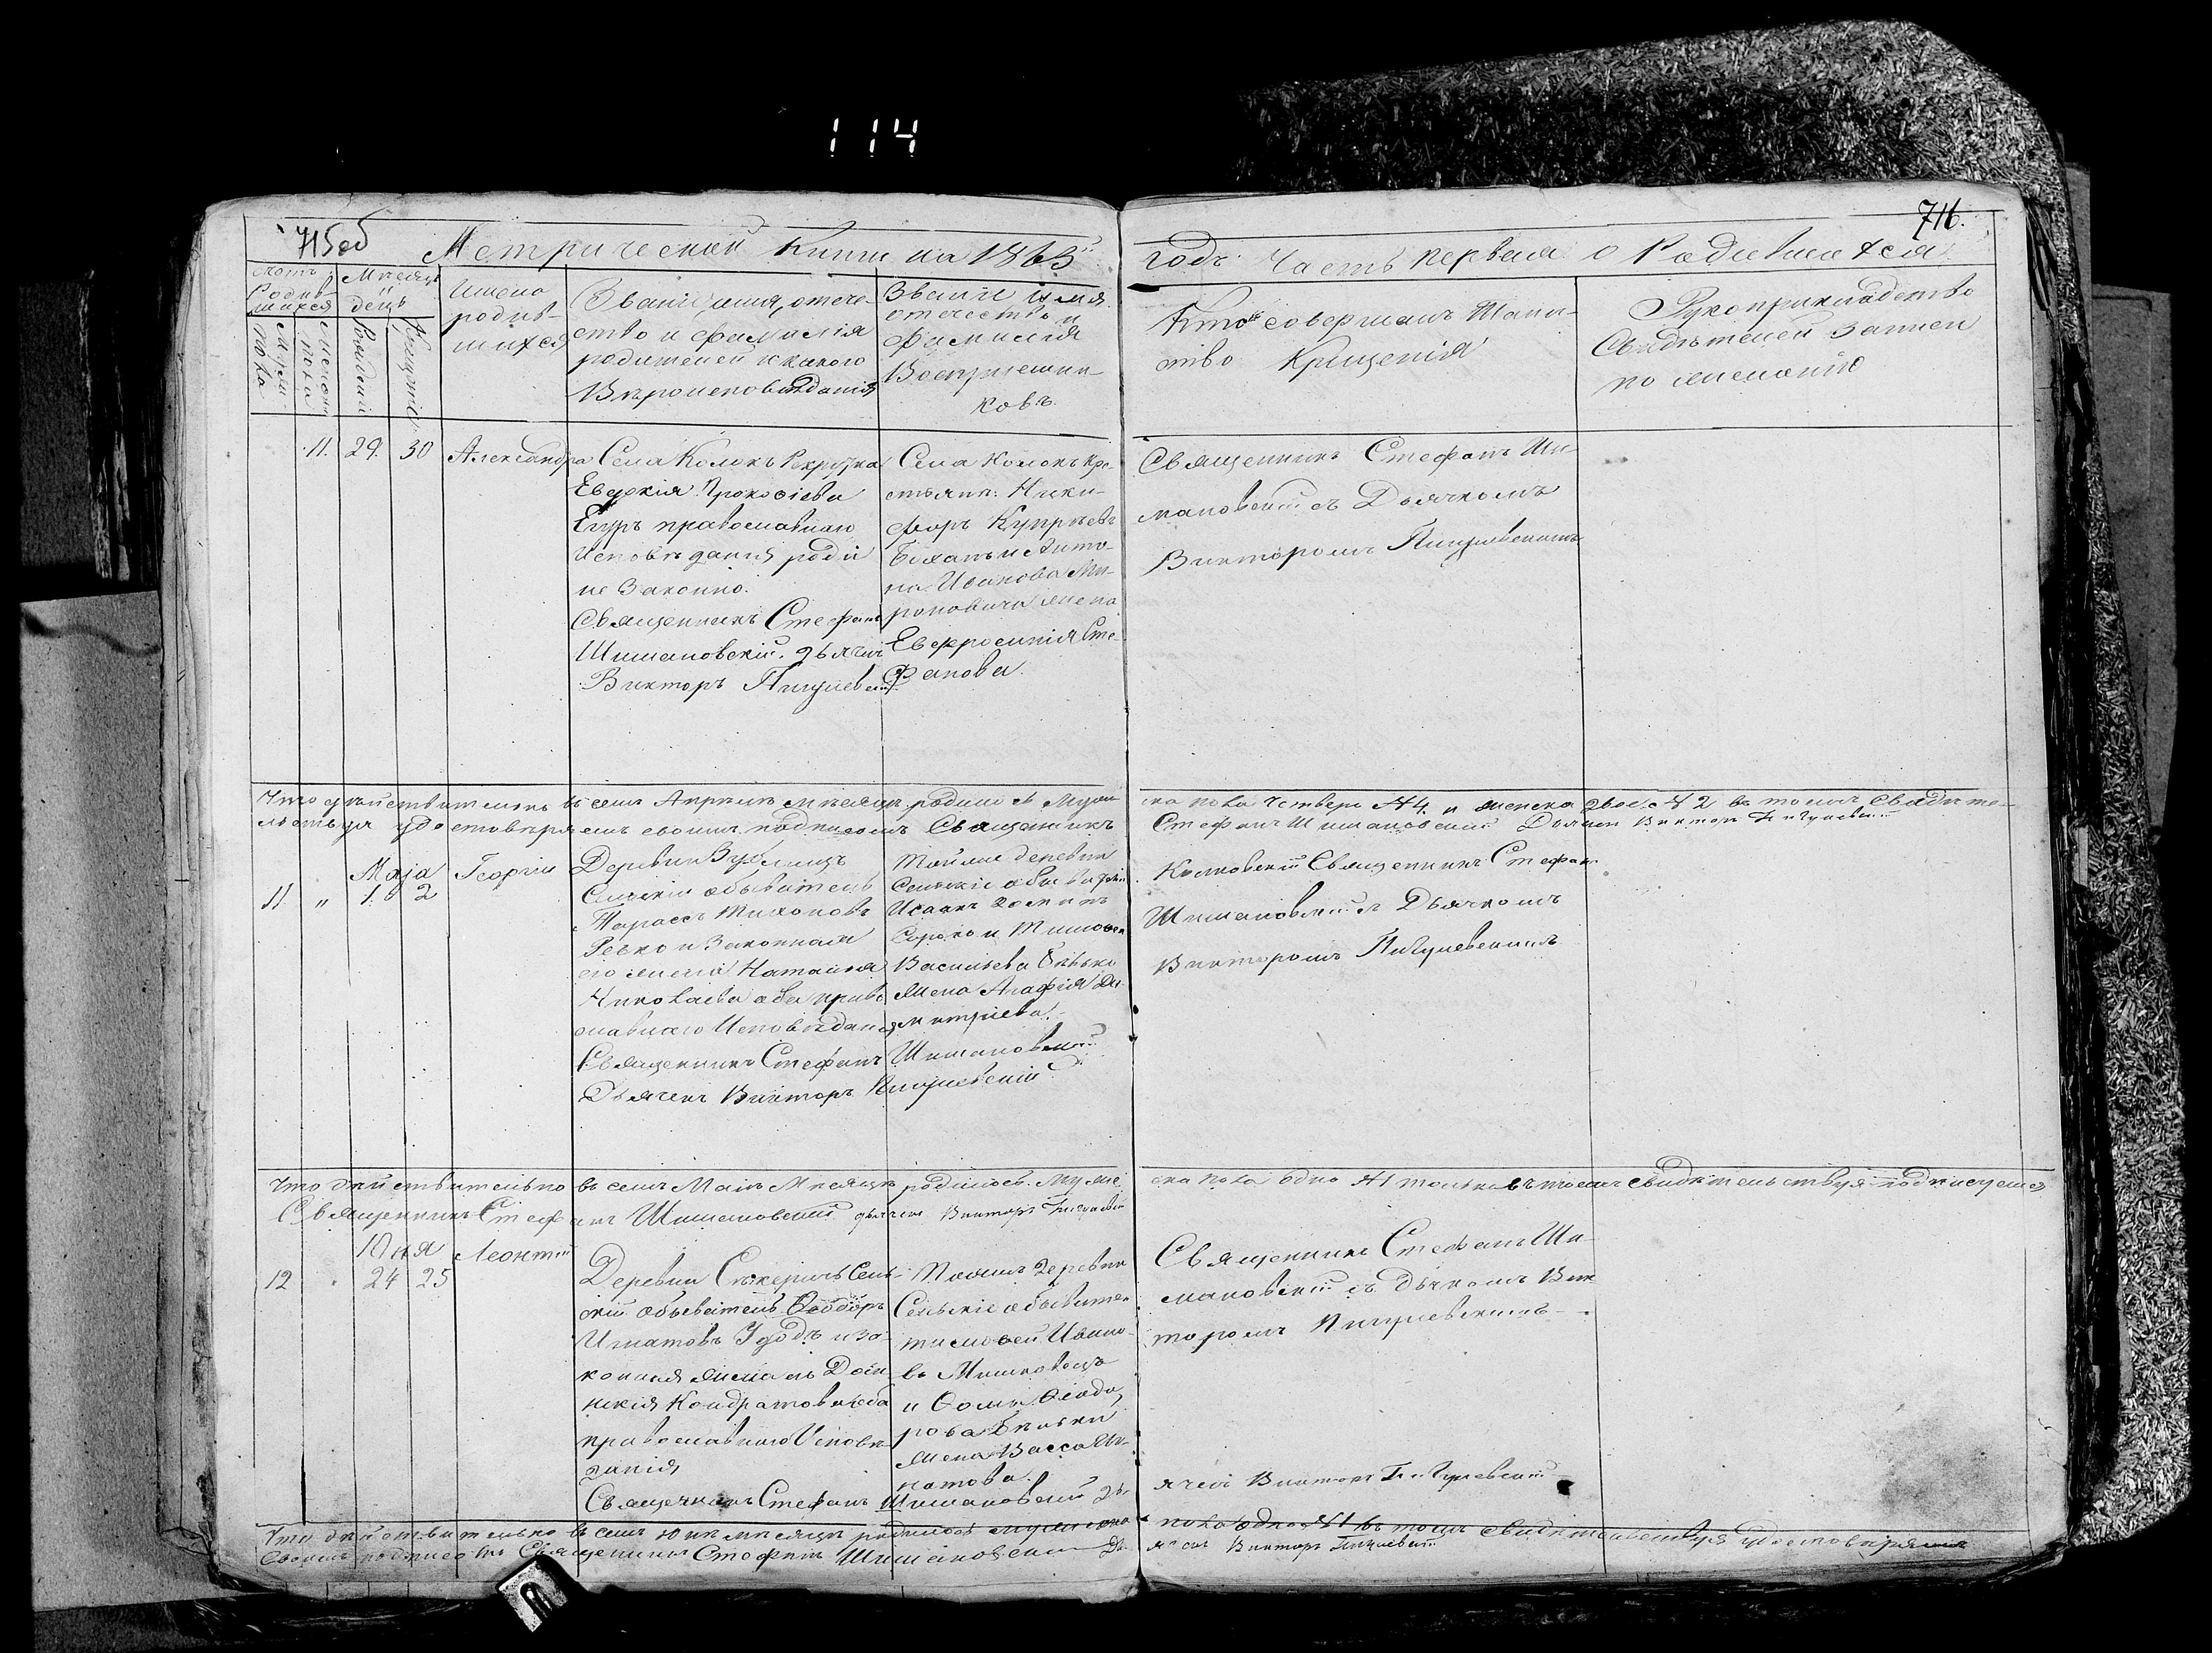 114
715об
716.
Метрической Книги на 1863й годъ Часть первая о Родившихся
Счетъ Родившихся
Мужеска пола
Женска пола
Мѣсяцъ и день
Рожденія
Крещенія
Имена
родив-
шихся
Званіе, имя, отече-
ство и фамилія
родителей и какого
Вѣроисповѣданія
Званіе имя
отечество и
фамилія
Воспріемни-
ковъ
Кто совершалъ Таин-
ство Крещенія
Рукоприкладство
Свидѣтелей записи
по желанію
11. 29. 30 Александра
Села Колокъ
Евдокія Прокофіева
православнаго
Исповѣданія
не Законно.
Священникъ Стефанъ
Шимановскій. дьячекъ
Викторъ
Села Колокъ Кре-
стьянинъ Ники-
форъ
на Исакова Ми-
роновича жена
Евфросинія Сте-
фанова.
Священникъ Стефанъ Ши-
мановскій съ Дьячкомъ
Викторомъ
Что дѣйствительно въ семъ Апрѣлѣ мѣсяцѣ родилось Муже-
ска пола четверо №4 и женска двое №2 въ томъ свидѣте-
льствуя удостовѣряемъ своимъ подписомъ Священникъ
Стефанъ Шимановскій Дьячекъ Викторъ
Маія Георгій
11 " 1. 2
Деревни
Сельскій обыватель
Тарасъ Тихоновъ
Ревко и Законная
его жена Наталія
Николаева оба право
славнаго Исповѣданія
Священникъ Стефанъ Шимановскій
Дьячекъ Викторъ
Той же деревни
Сельскіе обыватели
Исаакъ
Сороко и Тимофея
Васильева
жена Агафія Ди-
митріева.
Священникъ Стефанъ
Шимановскій съ Дьячкомъ
Викторомъ
Что дѣйствительно въ семъ Маіѣ Мѣсяцѣ родилось Муже
ска пола одно №1 только въ томъ свидѣтельствуя подписуемся
Священникъ Стефанъ Шимановскій дьячекъ Викторъ
Юня Леонтій
12 24 25
Деревни Сѣкеричъ Сель-
скій обыватель Ѳеодоръ
Игнатовъ и за-
конная жена его
Кондратова оба
православнаго Исповѣ
данія
Священникъ Стефанъ Шимановскій дь-
ячекъ Викторъ
деревни
Сельскіе обыватели
Тимофей Ивано-
въ
и Ѳомы Ѳеодо-
рова
жена Васса Иг-
натова.
Священникъ Стефанъ Ши-
мановскій съ Дьячкомъ Вик
торомъ
Что дѣйствительно въ семъ Юнѣ мѣсяцѣ родилось мужеска
пола одно №1 въ томъ свидѣтельствуя удостовѣряемъ
Своимъ подписомъ Священникъ Стефанъ Шимановскій Дь-
ячекъ Викторъ